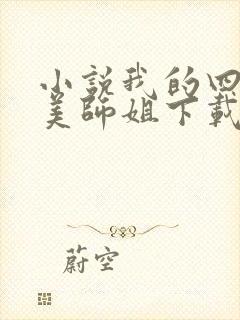 小説我的四
美師姐下載
蔚空